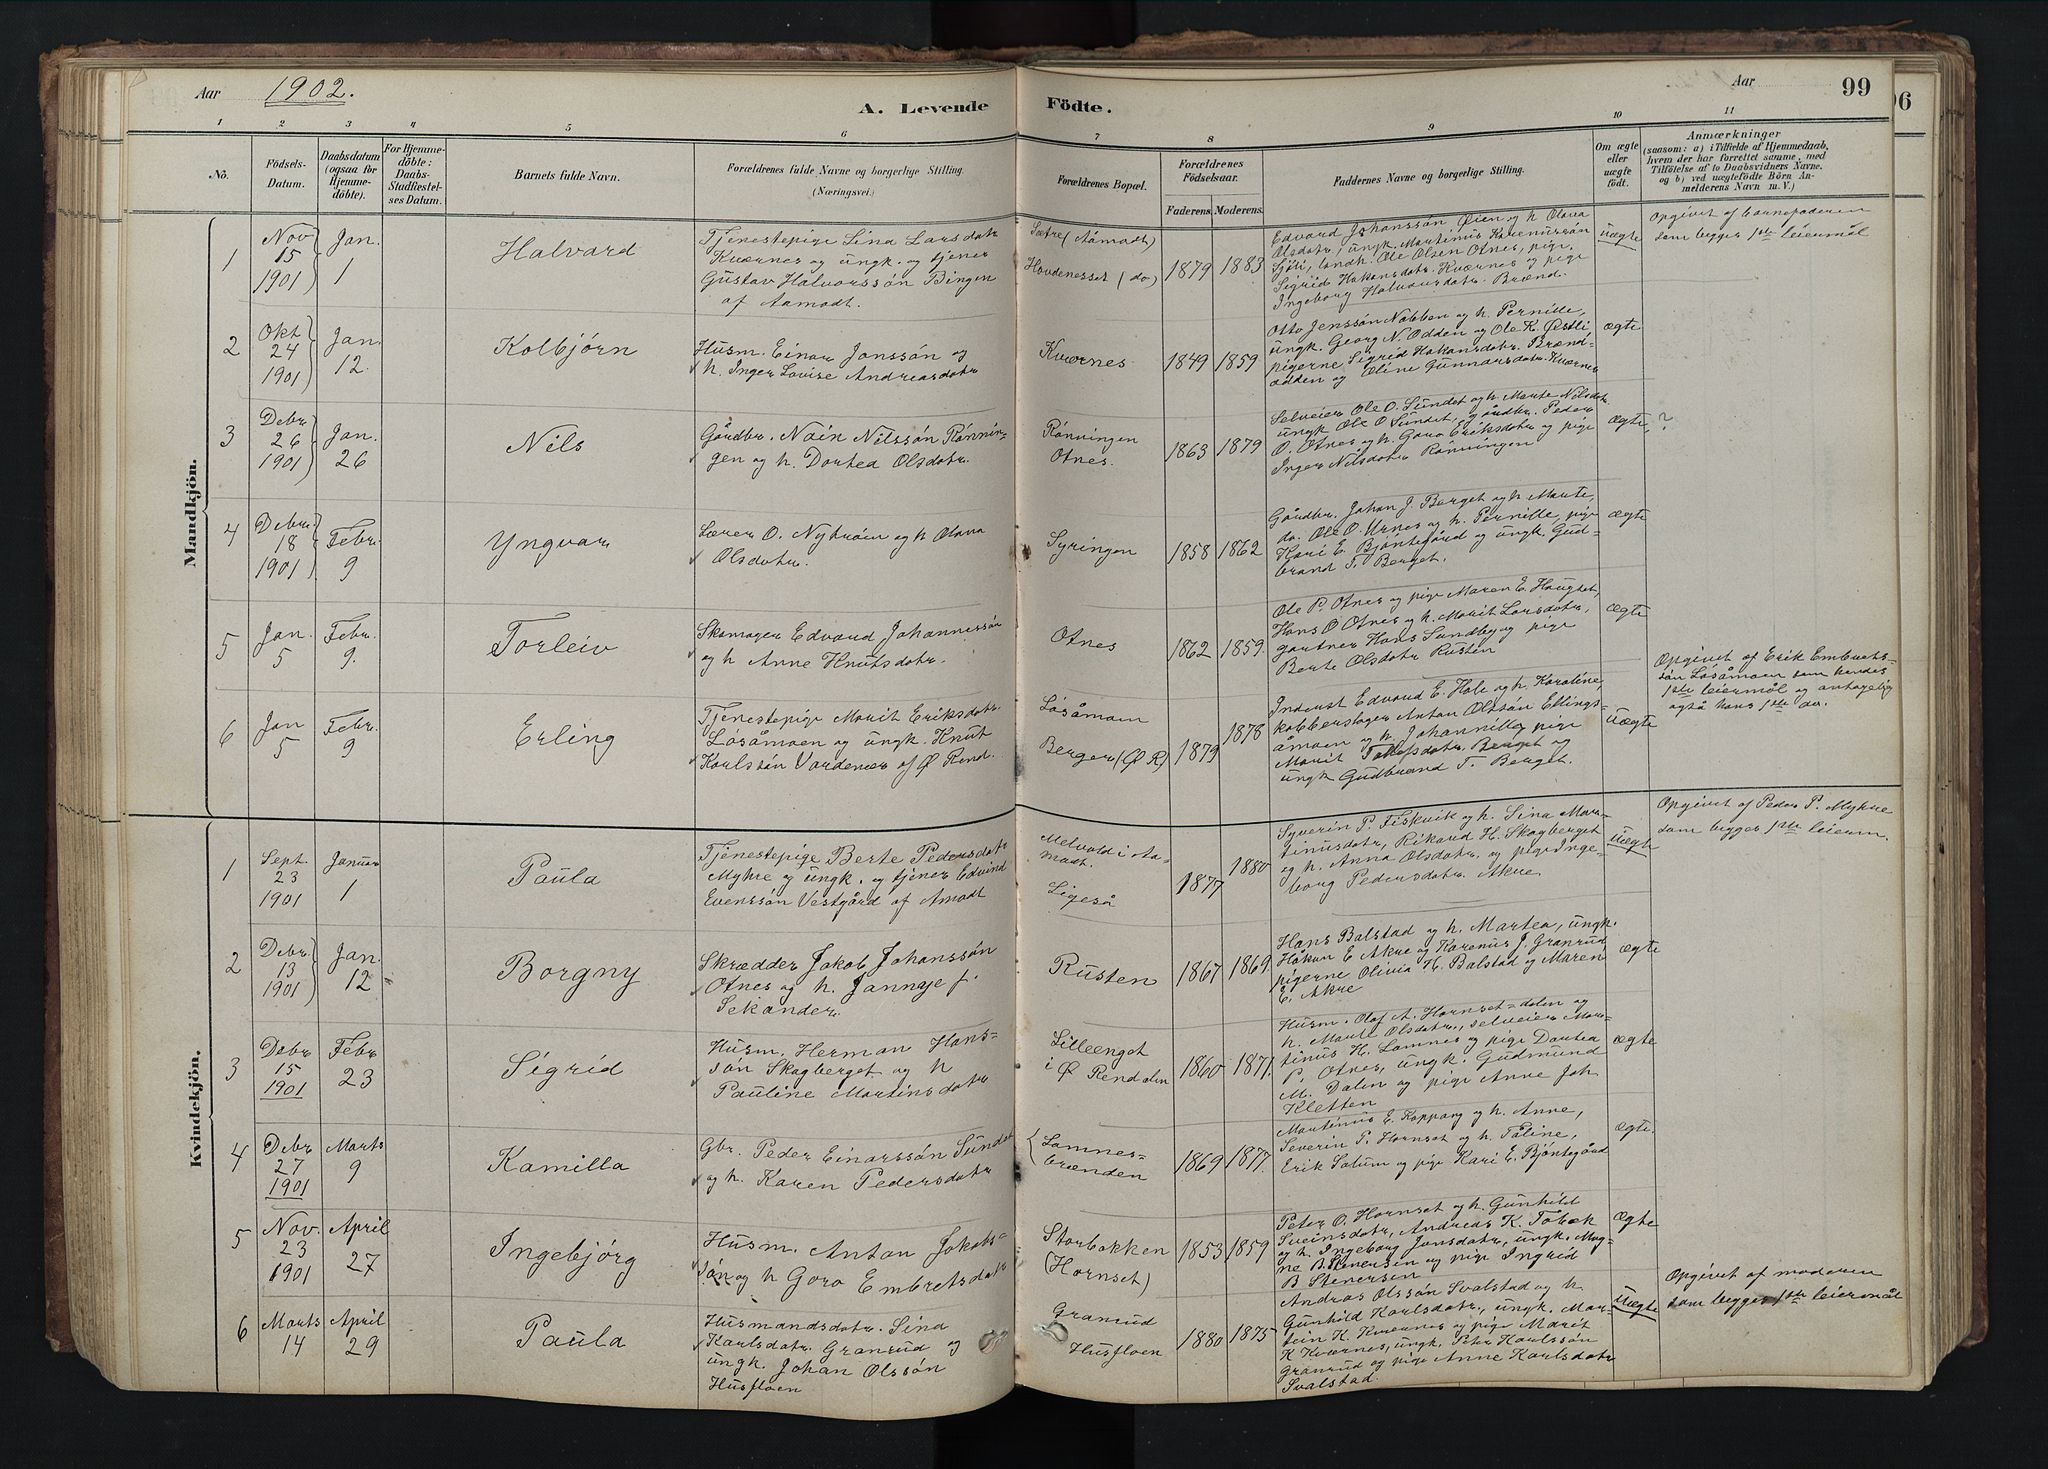 Aar 1902.
A. Levende
Födte.
Aar
99
96
1 2 3 4 5 6 7 8 9 10 11
No.
Födsels-
Datum.
Daabsdatum
(ogsaa for
Hjemme-
döbte).
For Hjemme-
döbte:
Daabs-
Stadfæstel-
ses Datum.
Barnets fulde Navn.
Forældrenes fulde Navne og borgerlige Stilling.
(Næringsvei.)
Forældrenes Bopæl.
Forældrenes
Födselsaar.
Faderens. Moderens.
Faddernes Navne og borgerlige Stilling.
Om ægte
eller
uægte
födt.
Anmærkninger
(saasom: a) i Tilfælde af Hjemmedaab,
hvem der har forrettet samme, med
Tilföielse af to Daabsvidners Navne,
og b) ved uægtefödte Börn An-
melderens Navn m. V.)
Mandkjön.
1
Nov
15
1901
Jan.
1
Halvard
Tjenestepige Sina Larsdatr
Kværnes og ungk. og tjener
Gustav Halvorssön Bingen
af Aamodt.
Sætre (Aamodt)
Hovdenesset (do)
1879 1883
Edvard Johanssön Öien og h Olava
Olsdatr, ungk. Martinus Karenussön
Sjöli, landh. Ole Olsen Otnes, pige
Sigrid Hakansdatr. Kværnes og pige
Ingeborg Halvorsdatr. Brænd.
uægte
Opgivet af barnefaderen
som begges 1ste leiermål
2
Okt
24
1901
Jan.
12.
Kolbjörn
Husm. Einar Jonssön og
h. Inger Lovise Andreasdatr
Kværnes
1849 1859
Otto Jenssön Nabben og h. Pernille,
ungk. Georg N. Odden og Ole K. Östli,
pigerne Sigrid Hakansdatr. Brænd-
odden og Oline Gunnarsdatr. Kværnes
ægte
3
Debr
26
1901
Jan.
26
Nils
Gårdbr. Nain Nilssön Rönnin-
gen og h. Dortea Olsdatr.
Rönningen
Otnes.
1863 1879
Selveier Ole O. Sundet og h. Marte Nilsdatr.
ungk Ole O Sundet, gårdbr. Peder
O. Otnes og h. Goro Eriksdatr og pige
Inger Nilsdatr Rönningen
ægte, ?
4
Debr.
18
1901
Febr.
9
Yngvar
Lærer O. Nytröen og h Olava
Olsdatr.
Syringen
1858 1862
Gårdbr. Johan J. Berget og h Marte,
do. Ole O. Urnes og h. Pernille, pige
Kari E. Bjöntegård og ungk. Gud-
brand T. Berget.
ægte
5
Jan.
5
Febr.
9.
Torleiv
Skomager Edvard Johannessön
og h Anne Knutsdatr.
Otnes
1862 1859.
Ole P. Otnes og pige Maren E. Haugset,
Hans O Otnes og h. Marit Larsdatr,
gartner Hans Sundby og pige
Berte Olsdatr Rusten
ægte
6
Jan
5
Febr.
9
Erling
Tjenestepige Marit Eriksdatr.
Lösåmoen og ungk. Knut
Karlssön Vardenær af Ö Rend.
Lösåmoen
Berger (Ö R)
1879 1878
Inderst Edvard E. Hole og h. Karoline,
kobberslager Anton Olssön Ellings-
åmoen og h. Johannille, pige
Marit Tollefsdatr. Berget og
ungk Gudbrand T. Berget.
uægte
Opgivet af Erik Embrets-
sön Lösåmoen som hendes
1ste leiermål og antagelig
også hans 1ste do.
Kvindekjön.
1
Sept.
23
1901
Januar
1
Paula
Tjenestepige Berte Pedersdatr
Myhre og ungk. og tjener Edvind
Evenssön Vestgård af Amodt
Melvold i Aa-
modt.
Ligeså
1877 1880
Syverin P. Fiskvik og h. Sina Mar-
tinusdatr, Rikard H. Skagberget
og h. Anna Olsdatr, og pige Inge-
borg Pedersdatr. Akre
uægte
Opgivet af Peder P. Myhre
som begges 1ste leierm.
2
Debr
13
1901
Jan.
12
Borgny
Skrædder Jakob Johanssön
Otnes og h. Jannaje f.
Sekander.
Rusten
1867 1869.
Hans Balstad og h. Martea, ungk.
Håkan E Akre og Karenus J. Granrud
pigerne Olivia H. Balstad og Maren
E. Akre
ægte
3
Debr
15
1901
Febr
23
Sigrid
Husm. Herman Hans-
sön Skagberget og h
Pauline Martinsdatr
Lilleenget
i Ö Rendalen
1860 1871.
Husm. Olaf A. Hornset=dalen og
h. Marte Olsdatr., selveier Mar-
tinus H. Lomnes og pige Dortea
P. Otnes, ungk. Gudmund
M. Dalen og pige Anne Joh
Kletten
ægte
4
Debr
27
1901
Marts
9
Kamilla
Gbr. Peder Einarssön Sundet
og h. Karen Pedersdatr
Lomnes-
brænden
1869 1877.
Martinus E. Koppang og h. Anne,
Severin P. Hornset og h. Tåline,
Erik Satum og pige Kari E. Bjöntegård
ægte.
5
Nov.
23
1901
April
27
Ingebjörg
Husm. Anton Jakobs-
sön og h Goro Embretsdatr
Storbakken
(Hornset)
1853 1859
Peter O. Hornset og h. Gunhild
Sveinsdatr, Andreas K. Tobæk
og h. Ingeborg Jonsdatr, ungk. Mag-
ne B. Stenersen og pige Ingrid
B Stenersen
ægte
6
Marts
14
April
29
Paula
Husmandsdatr. Sina
Karlsdatr. Granrud og
ungk. Johan Olssön
Husfloen
Granrud
Husfloen
1880 1875
Andras Olssön Svalstad og h.
Gunhild Karlsdatr, ungk. Mar-
tin K. Kværnes og pige Marit
K Kværnes, ungk. Peter Karlssön
Granrud og pige Anne Karlsdatr
Svalstad.
uægte
Opgivet af moderen
som begges 1ste leiermål